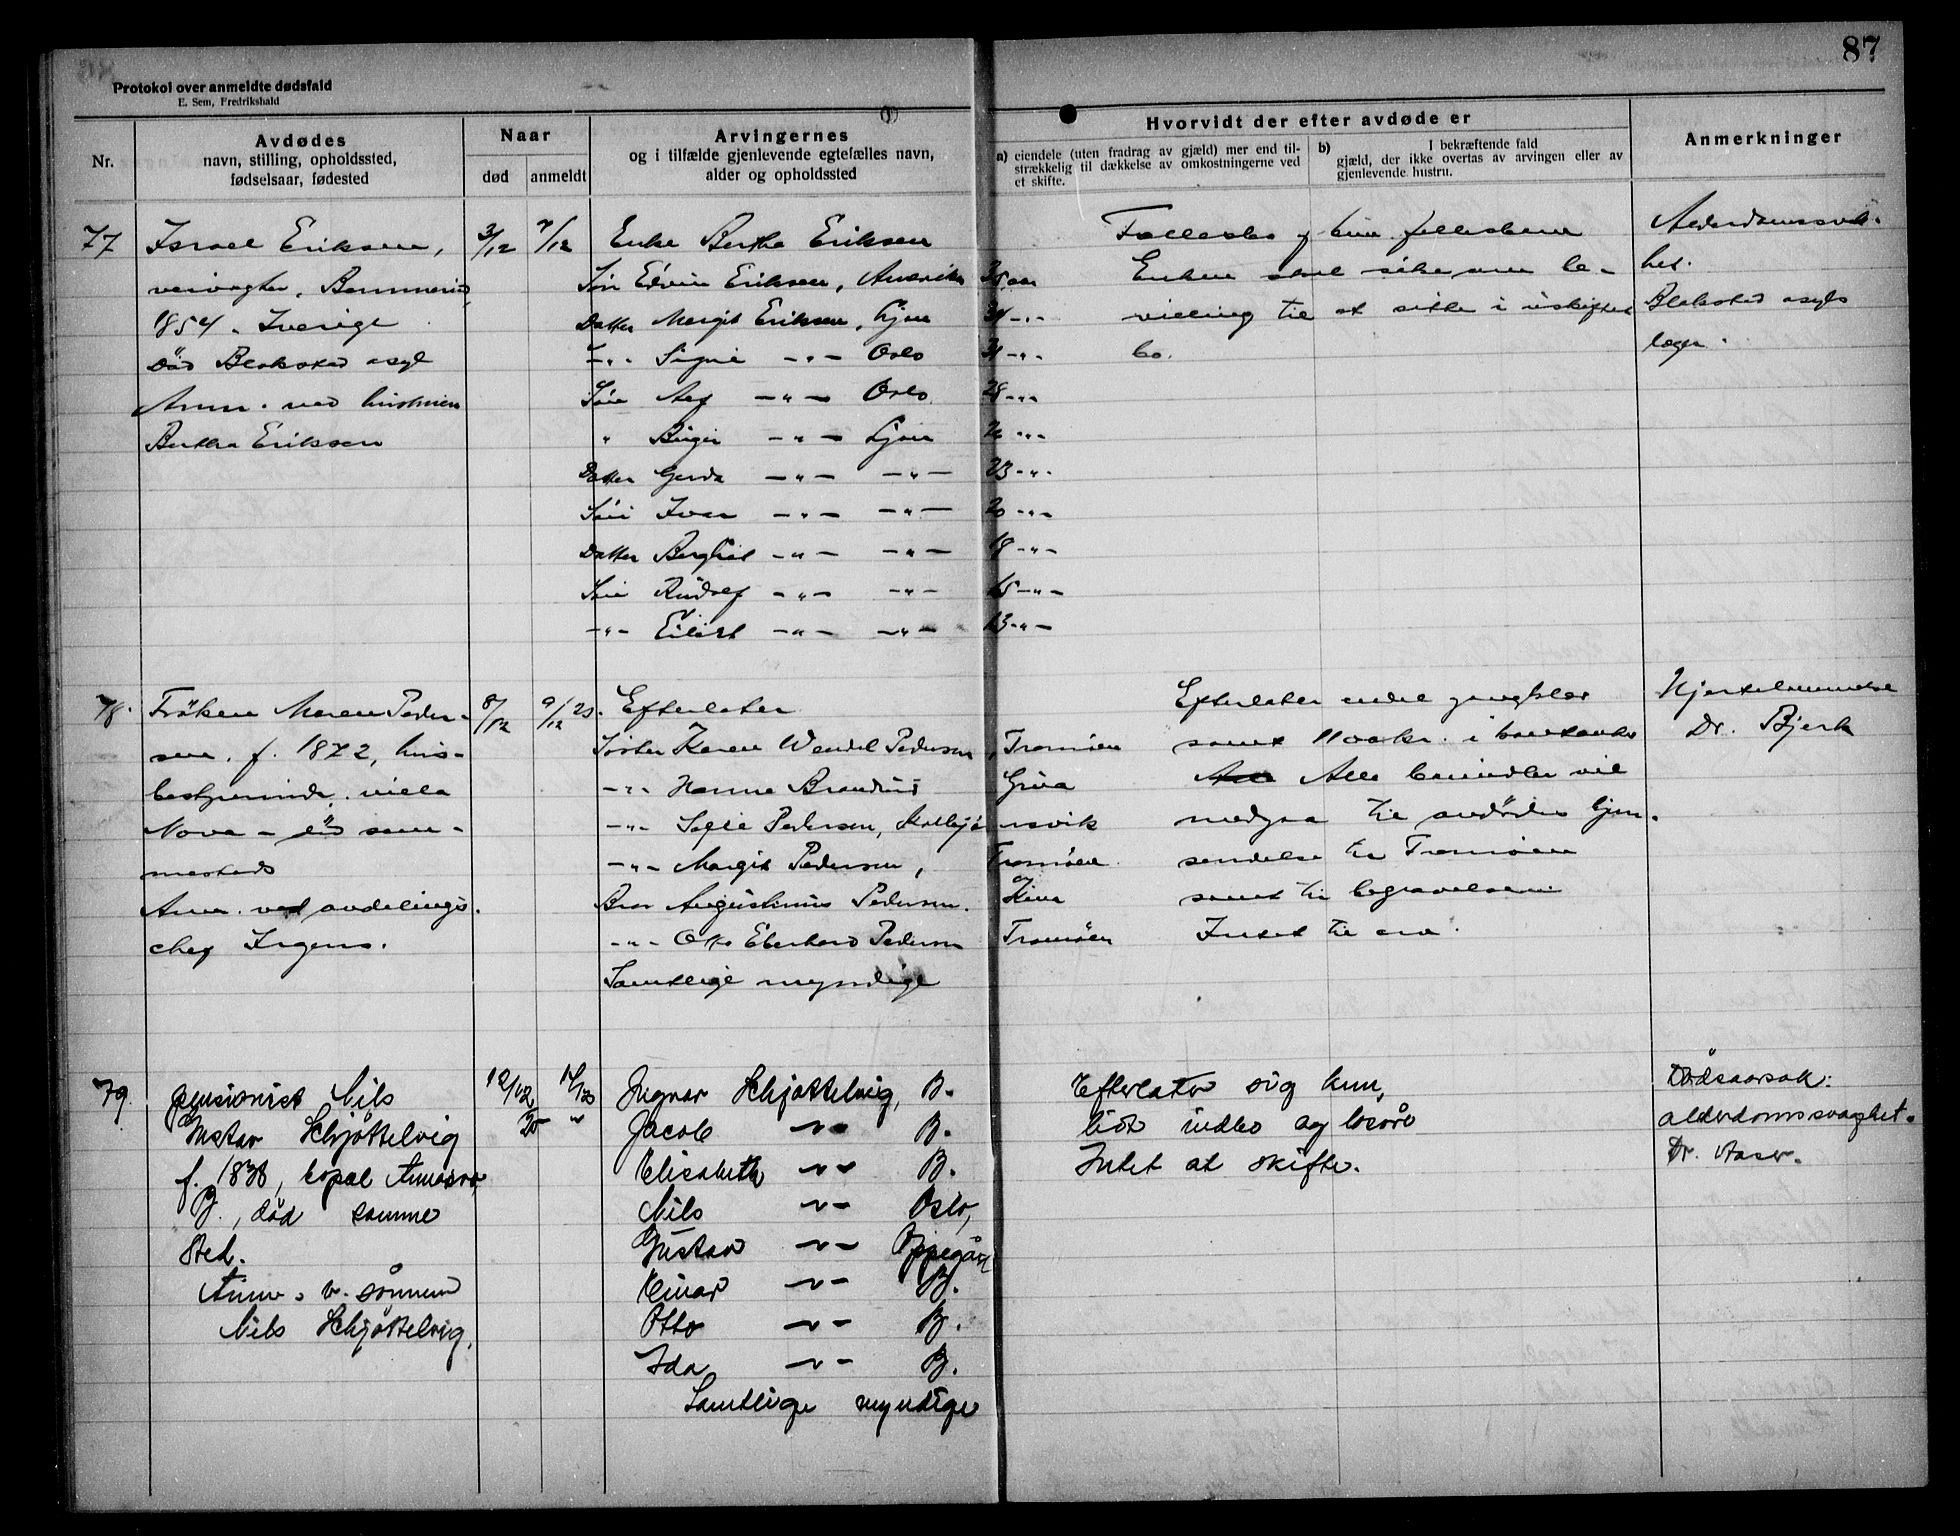 87
Protokol over anmeldte dødsfald
E. Sem, Fredrikshald
Nr.
Avdødes
navn, stilling, opholdssted,
fødselsaar, fødested
Naar
død
anmeldt
Arvingernes
og i tilfælde gjenlevende egtefælles navn,
alder og opholdssted
Hvorvidt der efter avdøde er
a) eiendele (uten fradrag av gjæld) mer end til-
strækkelig til dækkelse av omkostningerne ved
et skifte.
b) I bekræftende fald
gjæld, der ikke overtas av arvingen eller av
gjenlevende hustru.
Anmerkninger
77
Israel Eriksen,
veivogter,
1854. Sverige
Død Blakstad asyl
Anm. ved hustruen
Bertha Eriksen
3/12
7/12
Enke Bertha Eriksen
Søn Edvin Eriksen, Amerika 35 aar
Datter Margit Eriksen, Hjem 34 -"-
-"- Signe -"- Oslo 31 -"-
Søn Alf -"- Oslo 28 -"-
" Birger -"- Hjem 26 -"-
Datter Gerda -"- -"- 23 -"-
Søn Ivar -"- -"- 20 -"-
Datter Borghild -"- -"- 18 -"-
Søn Rudolf -"- -"- 15 -"-
-"- Eilert -"- -"- 13 -"-
Enken skal søke om be-
villing til at sitte i uskiftet
bo.
Alderdomssvak-
het.
Blakstad asyls
læge.
78.
Frøken Maren Peder-
sen. f. 1872, hus-
bestyrerinde, villa
Nova - død sam-
mesteds
Anm. ved avdelings-
chef Irgens.
8/12
9/12 25.
Efterlater
Søster Karen Wendel Pedersen, Tromøen
-"- Hanna
-"- Sofie Pedersen, Kolbjørnsvik
-"- Margit Pedersen, Tromøen
Bror Augustinus Pedersen. Kina
-"- Otto Eberhard Pedersen Tromøen
Samtlige myndige
Efterlater endel gangklær
samt 1100 kr. i bankonto
Alle beløp vil
medgaa til avdødes hjem-
sendelse til Tromøen
samt til begravelsen
Intet til arv.
Hjertelammelse
Dr. Bjerk
79.
pensionist Nils
Gustav Schjøttelvig
f. 1838,
B., død samme
sted.
Anm. v. sønnen
Nils Schjøttelvig,
12/12
25
Ingvar Schjøttelvig, B.
Jacob -"- B.
Elisabeth -"- B.
Nils -"- Oslo,
Gustav -"- Oppegård
Einar -"- B.
Otto -"- B.
Ida -"- B.
Samtlige myndige
Efterlater sig kun,
lidt indbo og løsøre
Intet at skifte.
Dødsaarsak:
alderdomssvaghet.
Dr. Aaser.